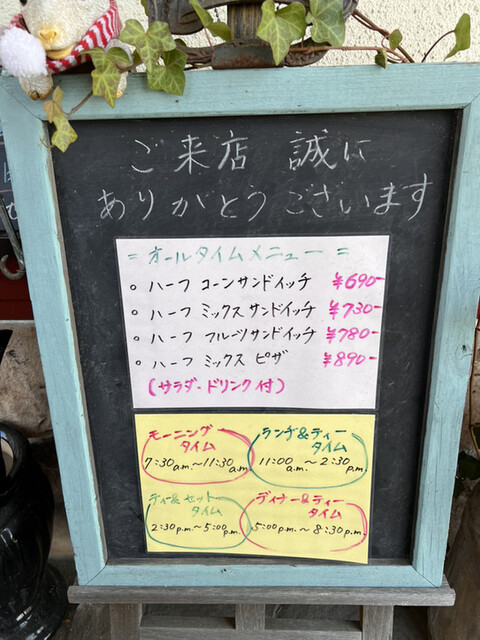 ご来店 誠に
ありがとうございます
= オールタイムメニュー =
○ ハーフ コーンサンドイッチ ¥690-
○ ハーフ ミックスサンドイッチ ¥730-
○ ハーフ フルーツサンドイッチ ¥780-
○ ハーフ ミックス ピザ ¥890-
(サラダ・ドリンク付)
モーニング
タイム
7:30a.m.～11:30a.m
ランチ&ティー
タイム
11:00a.m.～2:30p.m.
ティ&セット
タイム
2:30p.m.～5:00p.m.
ディナー&ティー
タイム
5:00p.m.～8:30p.m.